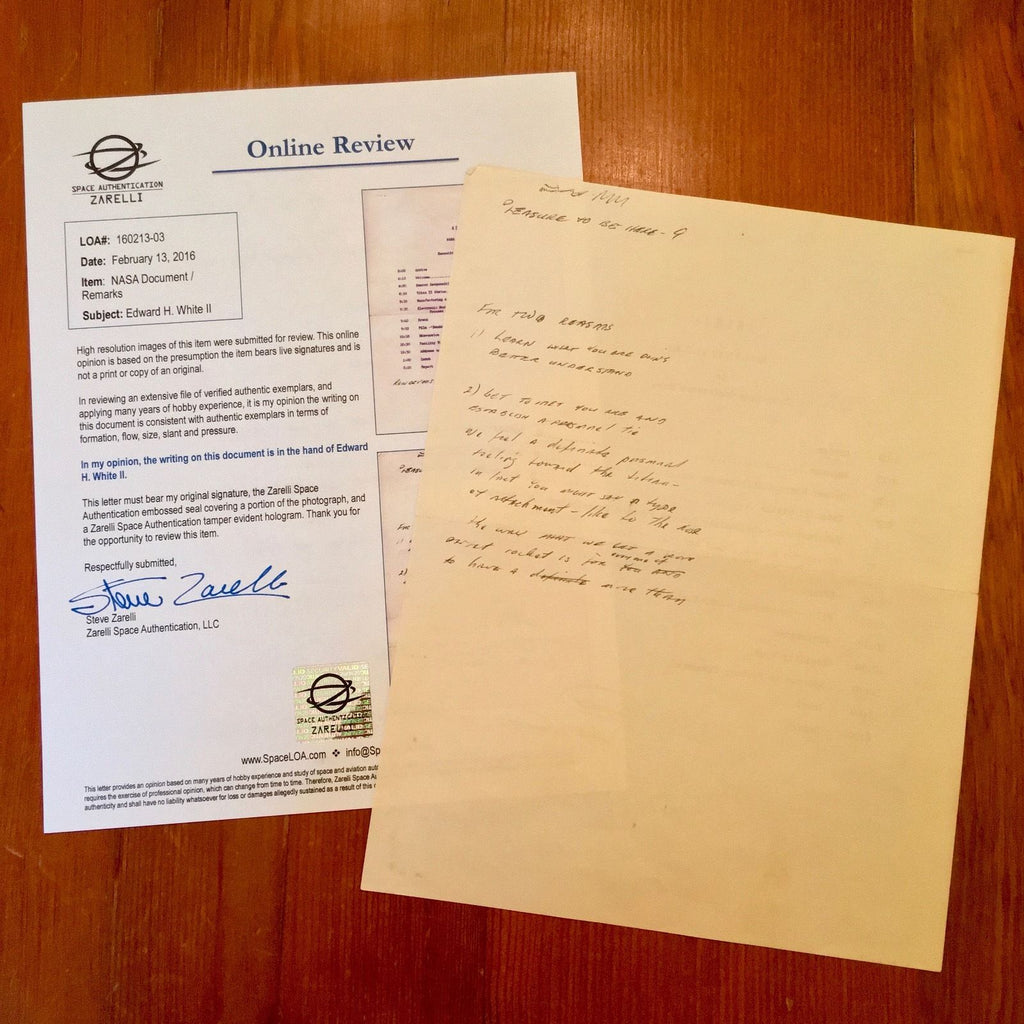 SPACE AUTHENTICATION
ZARELLI
Online Review
LOA#: 160213-03
Date: February 13, 2016
Item: NASA Document /
Remarks
Subject: Edward H. White II
High resolution images of this item were submitted for review. This online
opinion is based on the presumption the item bears live signatures and is
not a print or copy of an original.
In reviewing an extensive file of verified authentic exemplars, and
applying many years of hobby experience, it is my opinion the writing on
this document is consistent with authentic exemplars in terms of
formation, flow, size, slant and pressure.
In my opinion, the writing on this document is in the hand of Edward
H. White II.
This letter must bear my original signature, the Zarelli Space
Authentication embossed seal covering a portion of the photograph, and
a Zarelli Space Authentication tamper evident hologram. Thank you for
the opportunity to review this item.
Respectfully submitted,
Steve Zarelli
Steve Zarelli
Zarelli Space Authentication, LLC
SPACE AUTHENTICATION
ZARELLI
www.SpaceLOA.com ❖ info@Sp
This letter provides an opinion based on many years of hobby experience and study of space and aviation aut
requires the exercise of professional opinion, which can change from time to time. Therefore, Zarelli Space Au
authenticity and shall have no liability whatsoever for loss or damages allegedly sustained as a result of this o
PLEASURE TO BE HERE -
FOR TWO REASONS
1) LEARN WHAT YOU ARE DOING
BETTER UNDERSTAND
2) GET TO MEET YOU AND
ESTABLISH A PERSONAL TIE
We feel a definite personal
feeling toward the titian -
in fact you might say a type
of attachment - like to the
the way that we get a more
rocket is for you
to have a definite more than